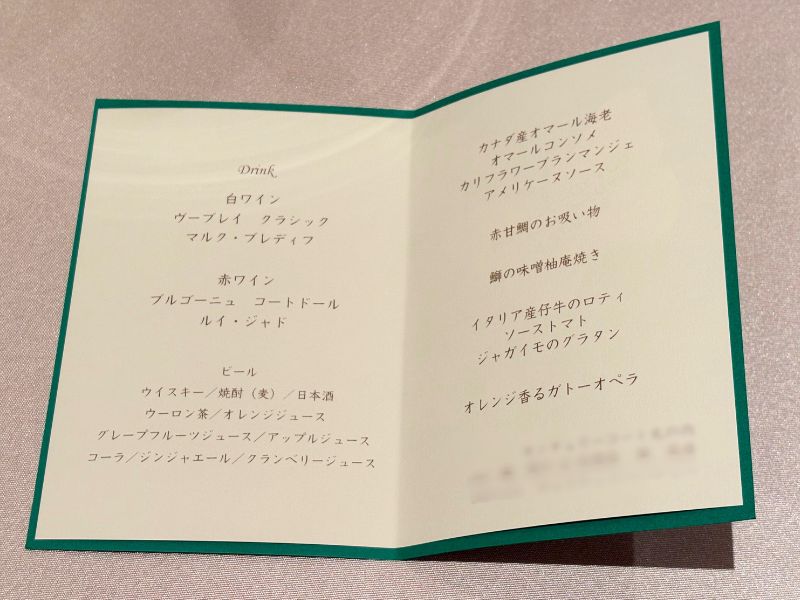 Drink
白ワイン
ヴーブレイ　クラシック
マルク・ブレディフ
赤ワイン
ブルゴーニュ　コートドール
ルイ・ジャド
ビール
ウイスキー／焼酎（麦）／日本酒
ウーロン茶／オレンジジュース
グレープフルーツジュース／アップルジュース
コーラ／ジンジャエール／クランベリージュース
カナダ産オマール海老
オマールコンソメ
カリフラワーブランマンジェ
アメリケーヌソース
赤甘鯛のお吸い物
鰤の味噌柚庵焼き
イタリア産仔牛のロティ
ソーストマト
ジャガイモのグラタン
オレンジ香るガトーオペラ